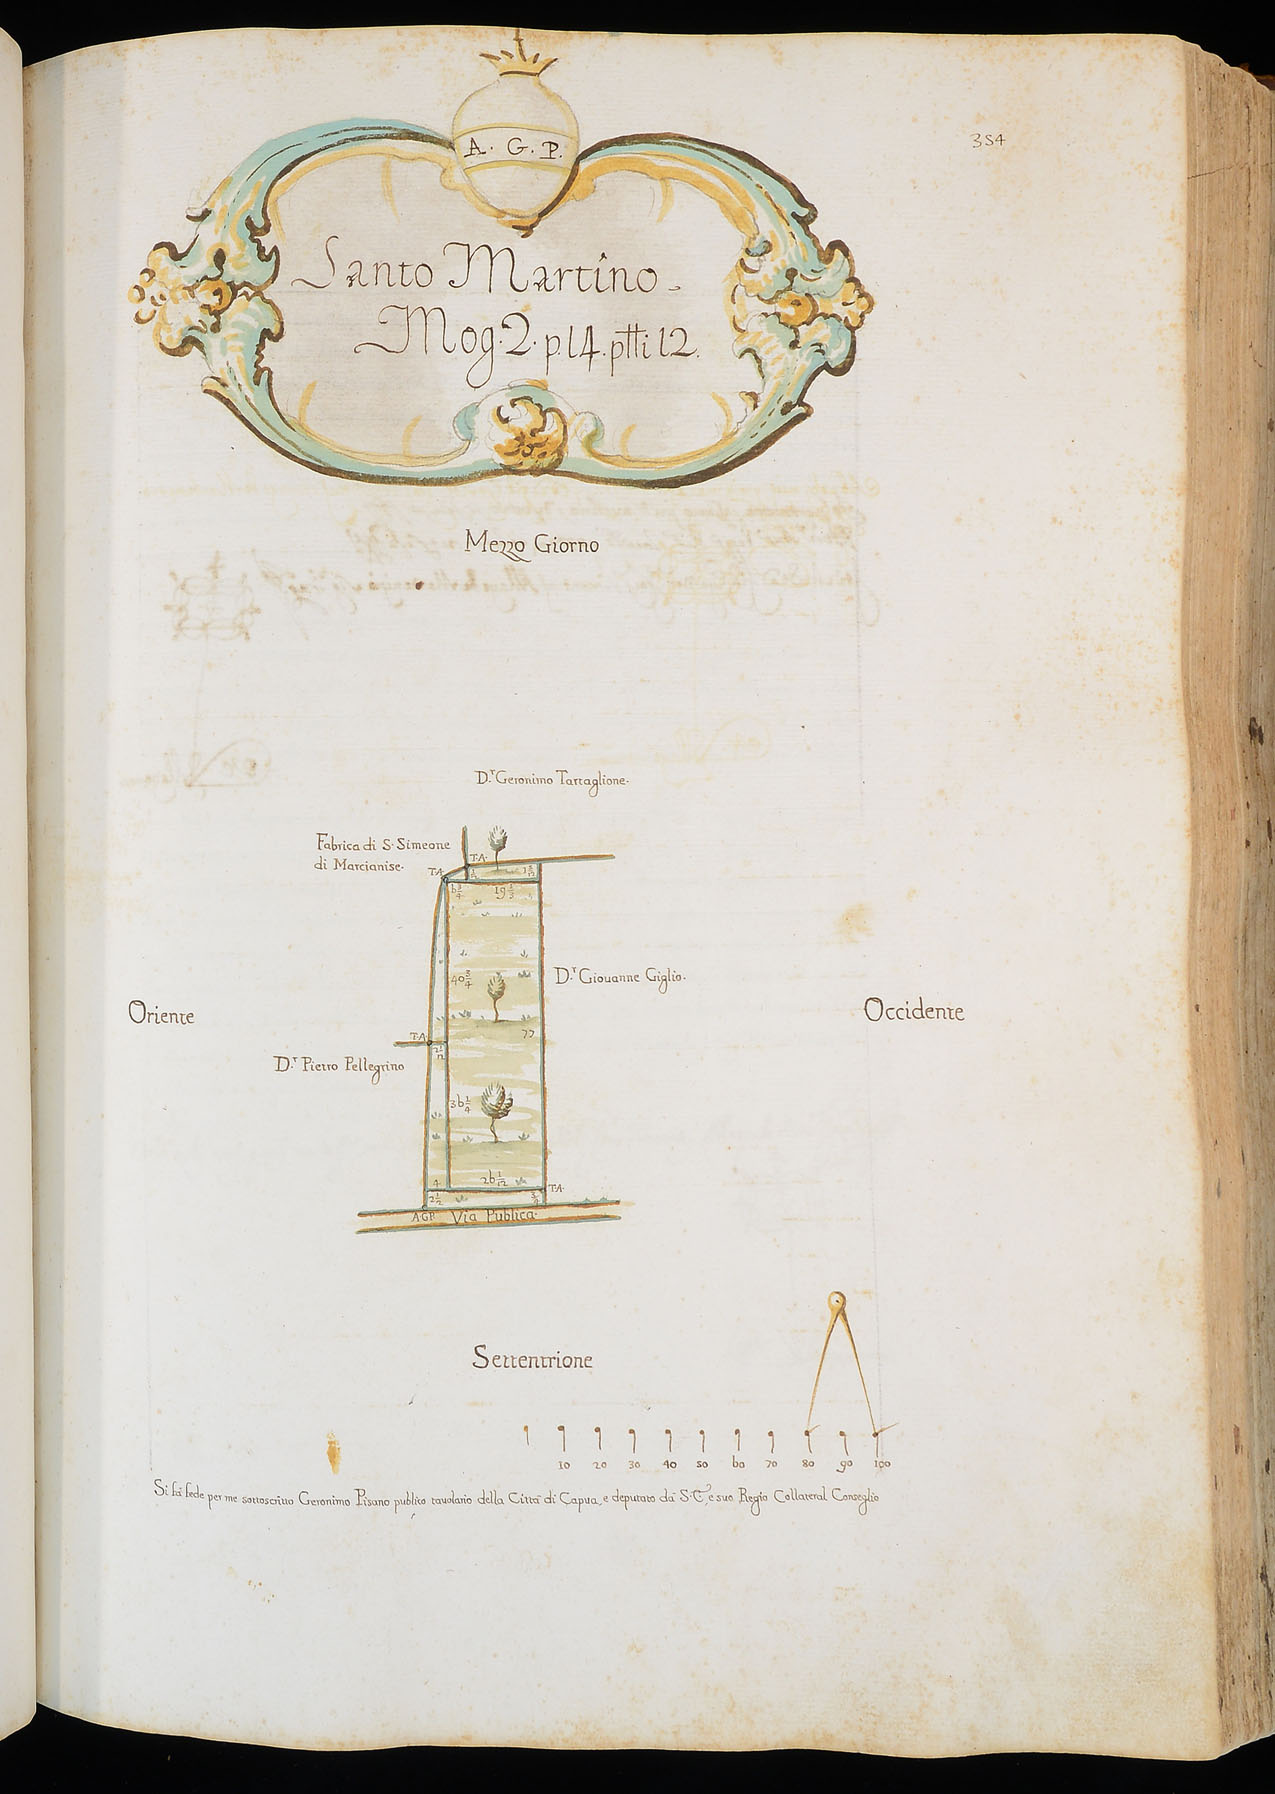 354
A. G. P.
Santo Martino.
Mog. 2. p. 14. ptti 12.
Mezzo Giorno
D.r Geronimo Tartaglione.
Fabrica di S. Simeone
di Marcianise.
T.A.
T.A.
19 1/3
40 3/4
D.r Giouanne Giglio.
Oriente
Occidente
77
T.A.
D.r Pietro Pellegrino
3b 1/4
4
2b 1/12
T.A.
2 1/2
3/4
A.G.P.
Via Publica.
Settentrione
10 20 30 40 50 60 70 80 90 100
Si fà fede per me sottoscritto Geronimo Pisano publico tauolario della Città di Capua, e deputato dà S. C. e suo Regio Collateral Conseglio